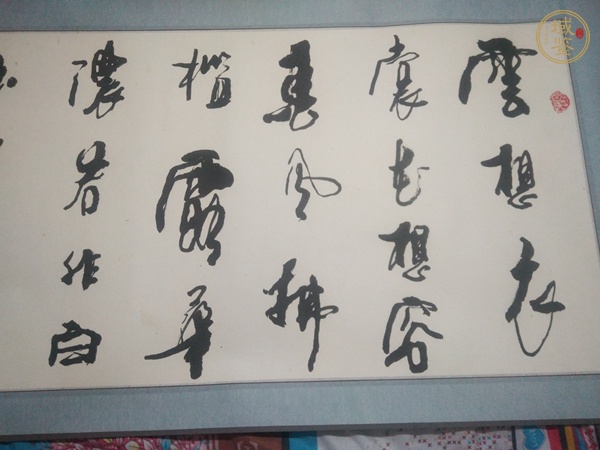 雲想衣
裳花想容
春风拂
檻露華
濃若非
域鉴